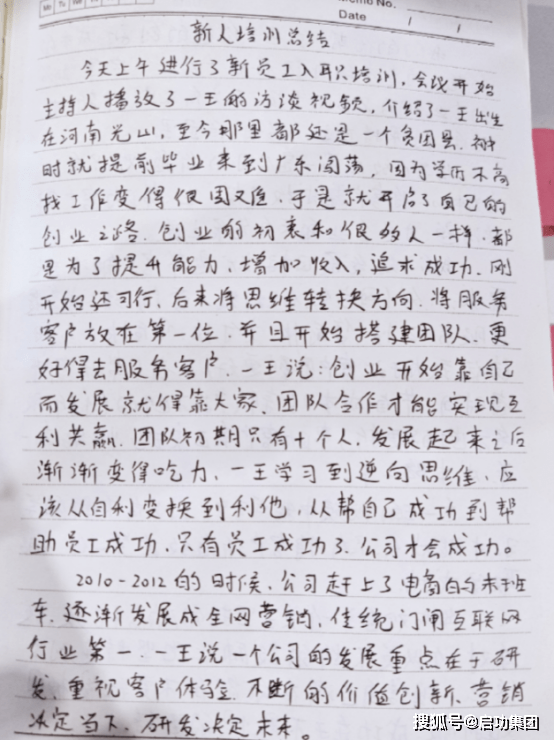 Mo Tu We
Memo No.
Date / /
新人培训总结
今天上午进行了新员工入职培训，会议开始
主持人播放了一王的访谈视频，介绍了一王出生
在河南光山，至今那里都还是一个贫困县，初
时就提前毕业来到广东闯荡，因为学历不高
找工作变得很困难，于是就开启了自己的
创业之路。创业的初衷和很多人一样，都
是为了提升能力、增加收入，追求成功。刚
开始还可行，后来将思维转换方向，将服务
客户放在第一位，并且开始搭建团队，更
好得去服务客户。一王说：创业开始靠自己
而发展就得靠大家，团队合作才能实现互
利共赢，团队初期只有十个人，发展起来之后
渐渐变得吃力，一王学习到逆向思维，应
该从自利变换到利他，从帮自己成功到帮
助员工成功，只有员工成功了，公司才会成功。
2010-2012的时候，公司赶上了电商的末班
车，逐渐发展成全网营销，佳统门阐互联网
行业第一，一王说一个公司的发展重点在于研
发，重视客户体验，不断的价值创新，营销
决定当下，研发决定未来。
搜狐号@启功集团